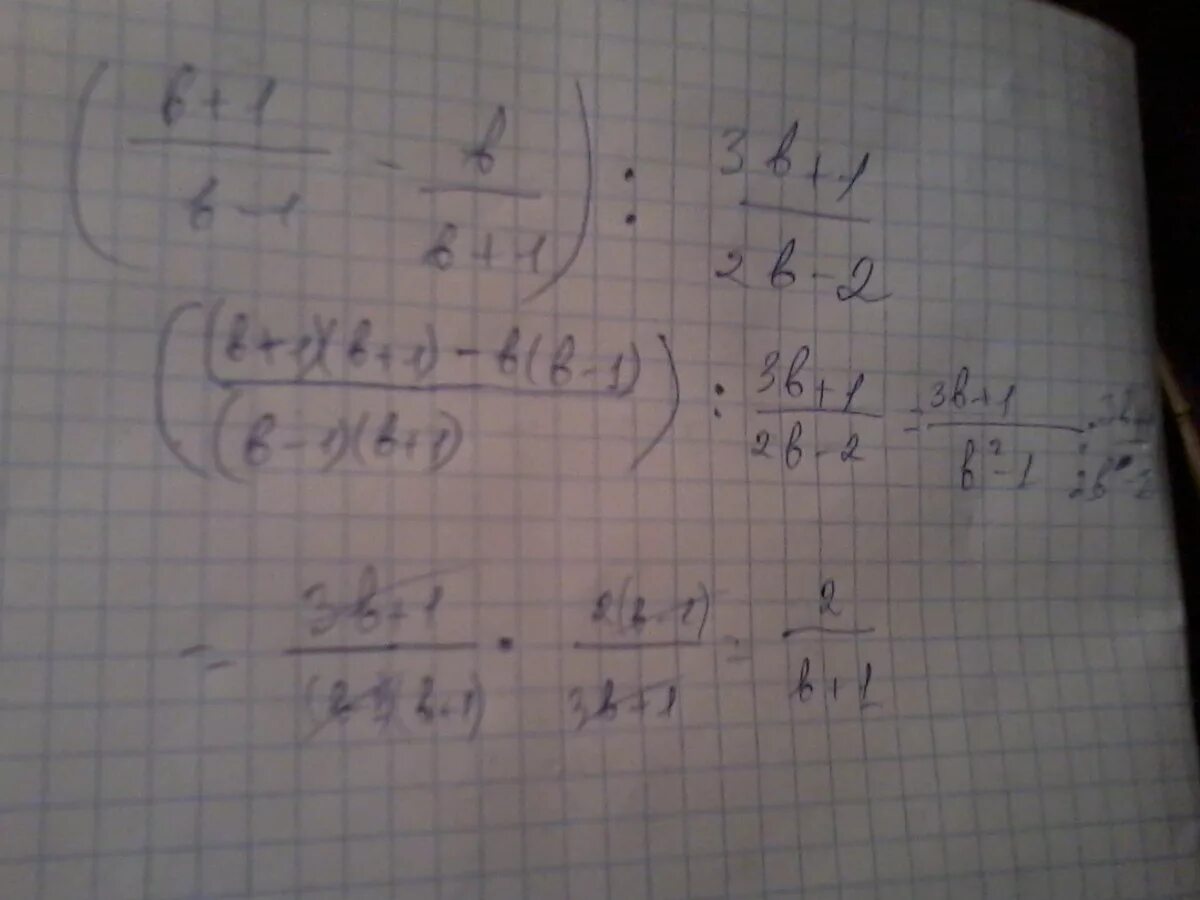 ( (b+1)/(b-1) - b/(b+1) ) : (3b+1)/(2b-2)
( ((b+1)(b+1) - b(b-1))/((b-1)(b+1)) ) : (3b+1)/(2b-2) = (3b+1)/(b²-1)
= (3b+1)/((b-1)(b+1)) · 2(b-1)/(3b+1) = 2/(b+1)